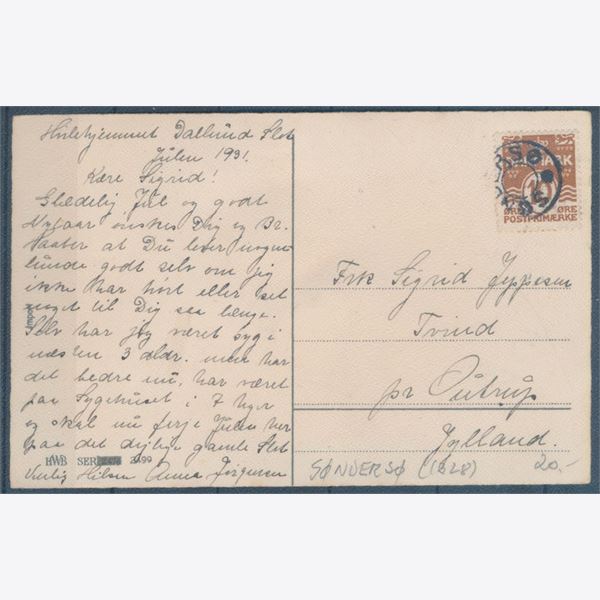 Hvilehjemmet Dallund Slot
Julen 1931.
Kære Sigrid!
Glædelig Jul og godt
Nytaar ønskes Dig og Br.
Haaber at Du lever nogen
lunde godt selv om jeg
ikke har hørt eller set
noget til Dig saa længe.
Selv har jeg været syg i
næsten 3 dldr. men har
det bedre nu, har været
paa Sygehuset i 7 Uger
og skal nu fejre Julen her
paa det dejlige gamle Slot
Venlig Hilsen Anna Jørgensen
Import
HWB SER 3499
DANMARK
10
ØRE ØRE
POSTFRIMÆRKE
SØNDERSØ
Frk Sigrid Jeppesen
Tvind
pr Outrup
Jylland.
SØNDERSØ (1628) 20,-